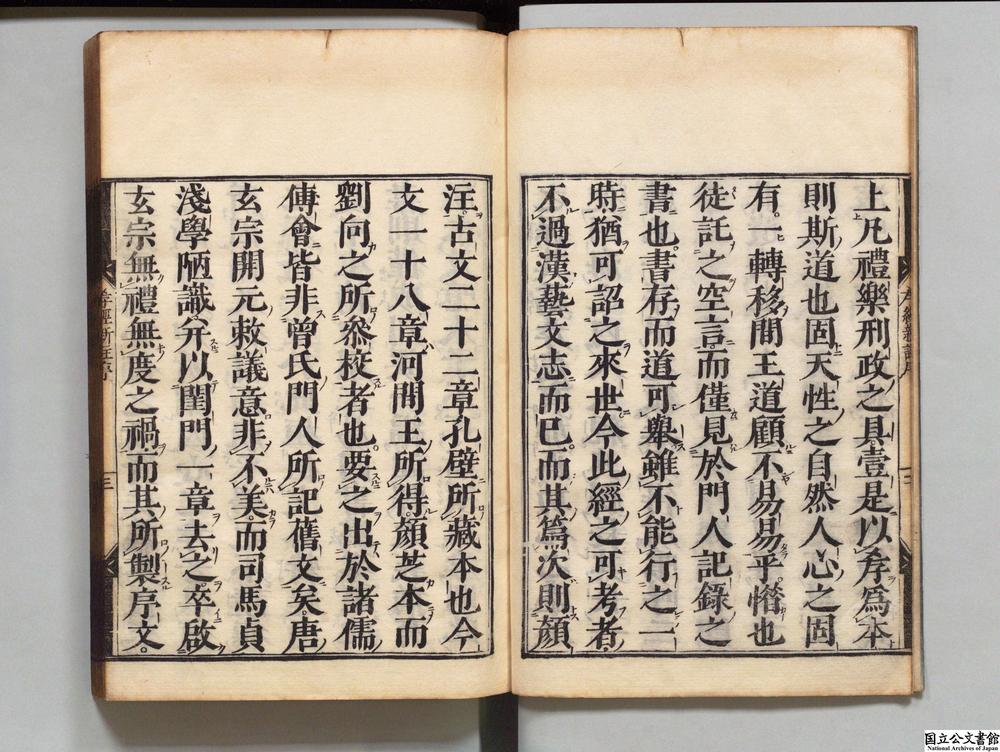 上凡禮樂刑政之具壹是以孝爲本
則斯道也固天性之自然人心之固
有一轉移間王道顧不易易乎惜也
徒託之空言而僅見於門人記錄之
書也書存而道可舉雖不能行之一
時猶可詔之來世今此經之可考者
不過漢藝文志而已而其篇次則顔
注古文二十二章孔壁所藏本也今
文一十八章河間王所得顔芝本而
劉向之所叅校者也要之出於諸儒
傅會皆非曾氏門人所記舊文矣唐
玄宗開元敕議意非不美而司馬貞
淺學陋識并以閨門一章去之卒啟
玄宗無禮無度之禍而其所製序文
孝經新註序
三
国立公文書館
National Archives of Japan